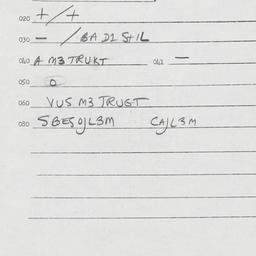 020 + / +
030 — / BA D1 StIL
040 A M3 TRUKT 041 —
050 O
060 VUS M3 TRUGT
080 SBESOJL3M CAJL3M